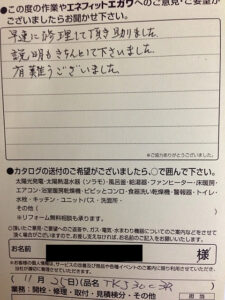 ●この度の作業やエネフィットエガワへのご意見・ご要望が
ございましたらお聞かせ下さい。
早速に修理して頂き助かりました。
説明もきちんとして下さいました。
有難うございました。
※ご協力ありがとうございました。
●カタログの送付のご希望がございましたら、○で囲んで下さい。
太陽光発電・太陽熱温水器（ソラモ）・風呂釜・給湯器・ファンヒーター・床暖房・
エアコン・浴室暖房乾燥機・ピピッとコンロ・食器洗い乾燥機・警報器・トイレ・
水栓・キッチン・ユニットバス・洗面所・
その他（
※リフォーム無料相談も承ります。
お名前
様
11月 2(日)(品名 TKJ
業務：開栓・修理・取付・見積検分・その他